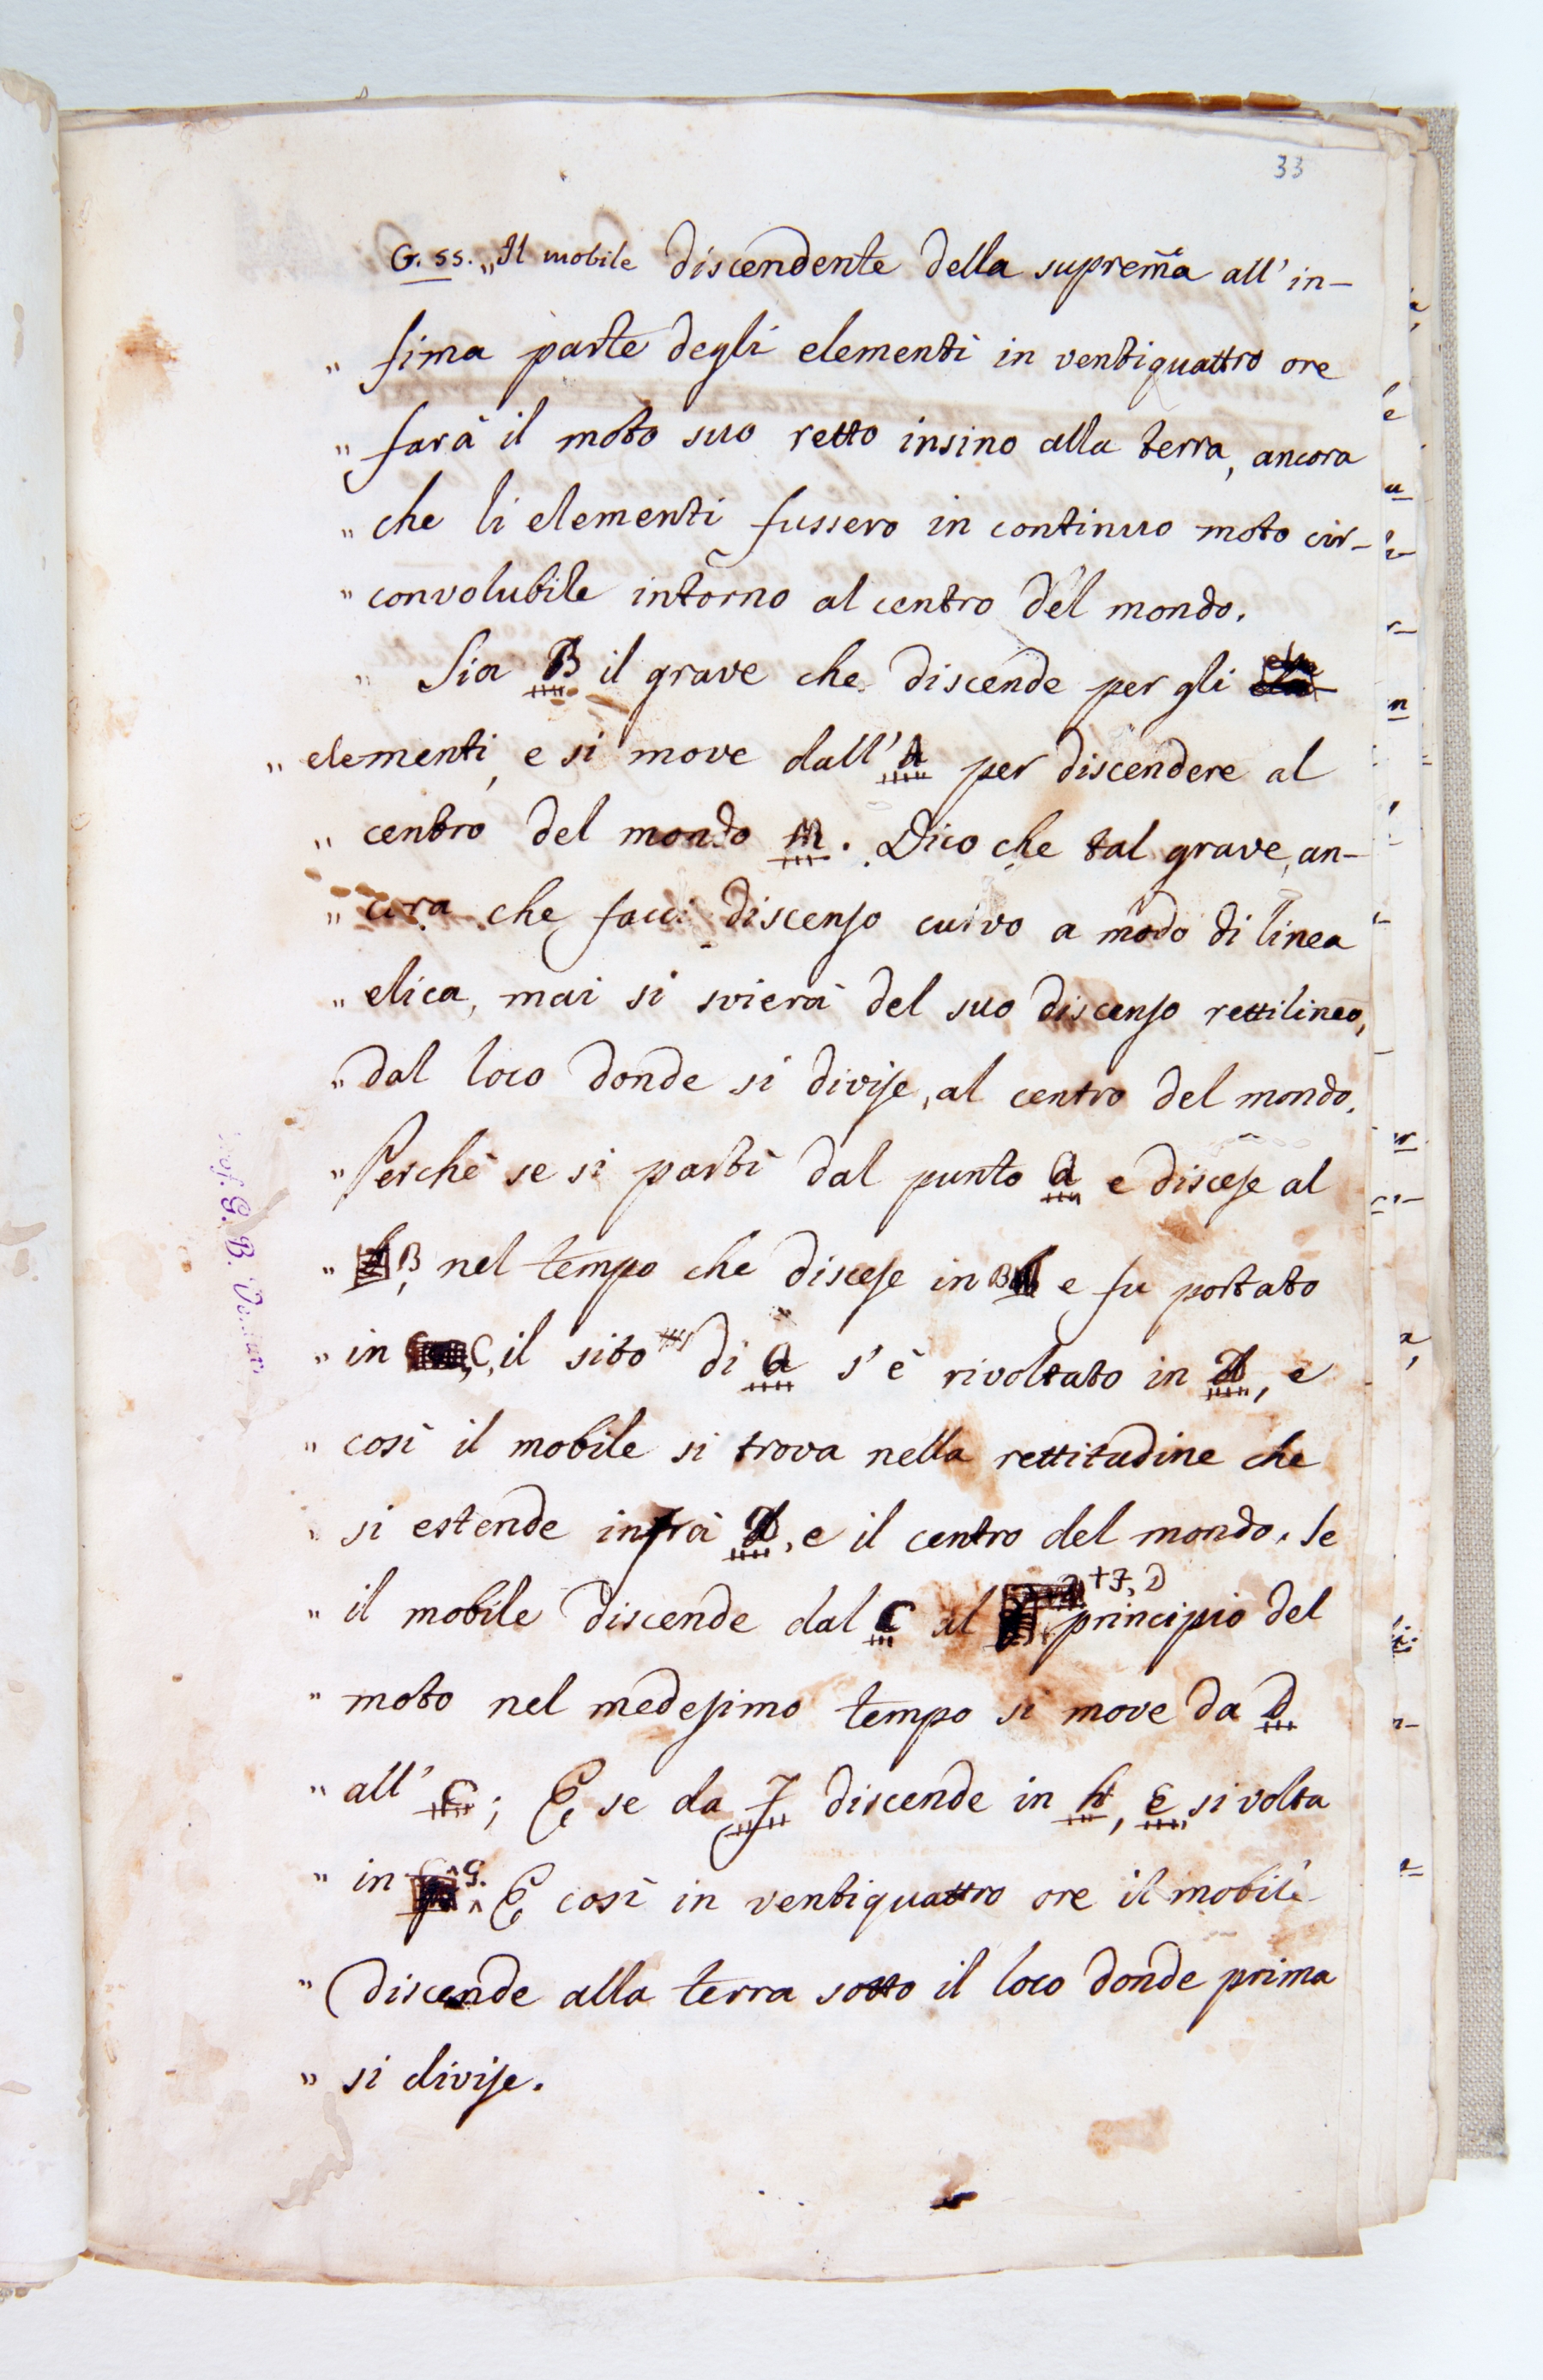 33
G. 55. „Il mobile discendente della suprema all' in-
„ fima parte degli elementi in ventiquattro ore
„ farà il moto suo retto insino alla terra, ancora
„ che li elementi fussero in continuo moto cir-
„ convolubile intorno al centro del mondo.
„ Sia B il grave che discende per gli
„ elementi, e si move dall' A per discendere al
„ centro del mondo M. Dico che tal grave, an-
„ cora che facci discenso curvo a modo di linea
„ elica, mai si svierà del suo discenso rettilineo,
„ dal loco donde si divise, al centro del mondo.
„ Perchè se si partì dal punto a e discese al
„ B, nel tempo che discese in B e fu portato
„ in C, il sito di a s'è rivoltato in D, e
„ così il mobile si trova nella rettitudine che
„ si estende infrà D, e il centro del mondo. Se
„ il mobile discende dal C al + F, D principio del
„ moto nel medesimo tempo si move da D
„ all' E; E se da F discende in h, E si volta
„ in G. E così in ventiquattro ore il mobile
„ discende alla terra sotto il loco donde prima
„ si divise.
Prof. G. B.